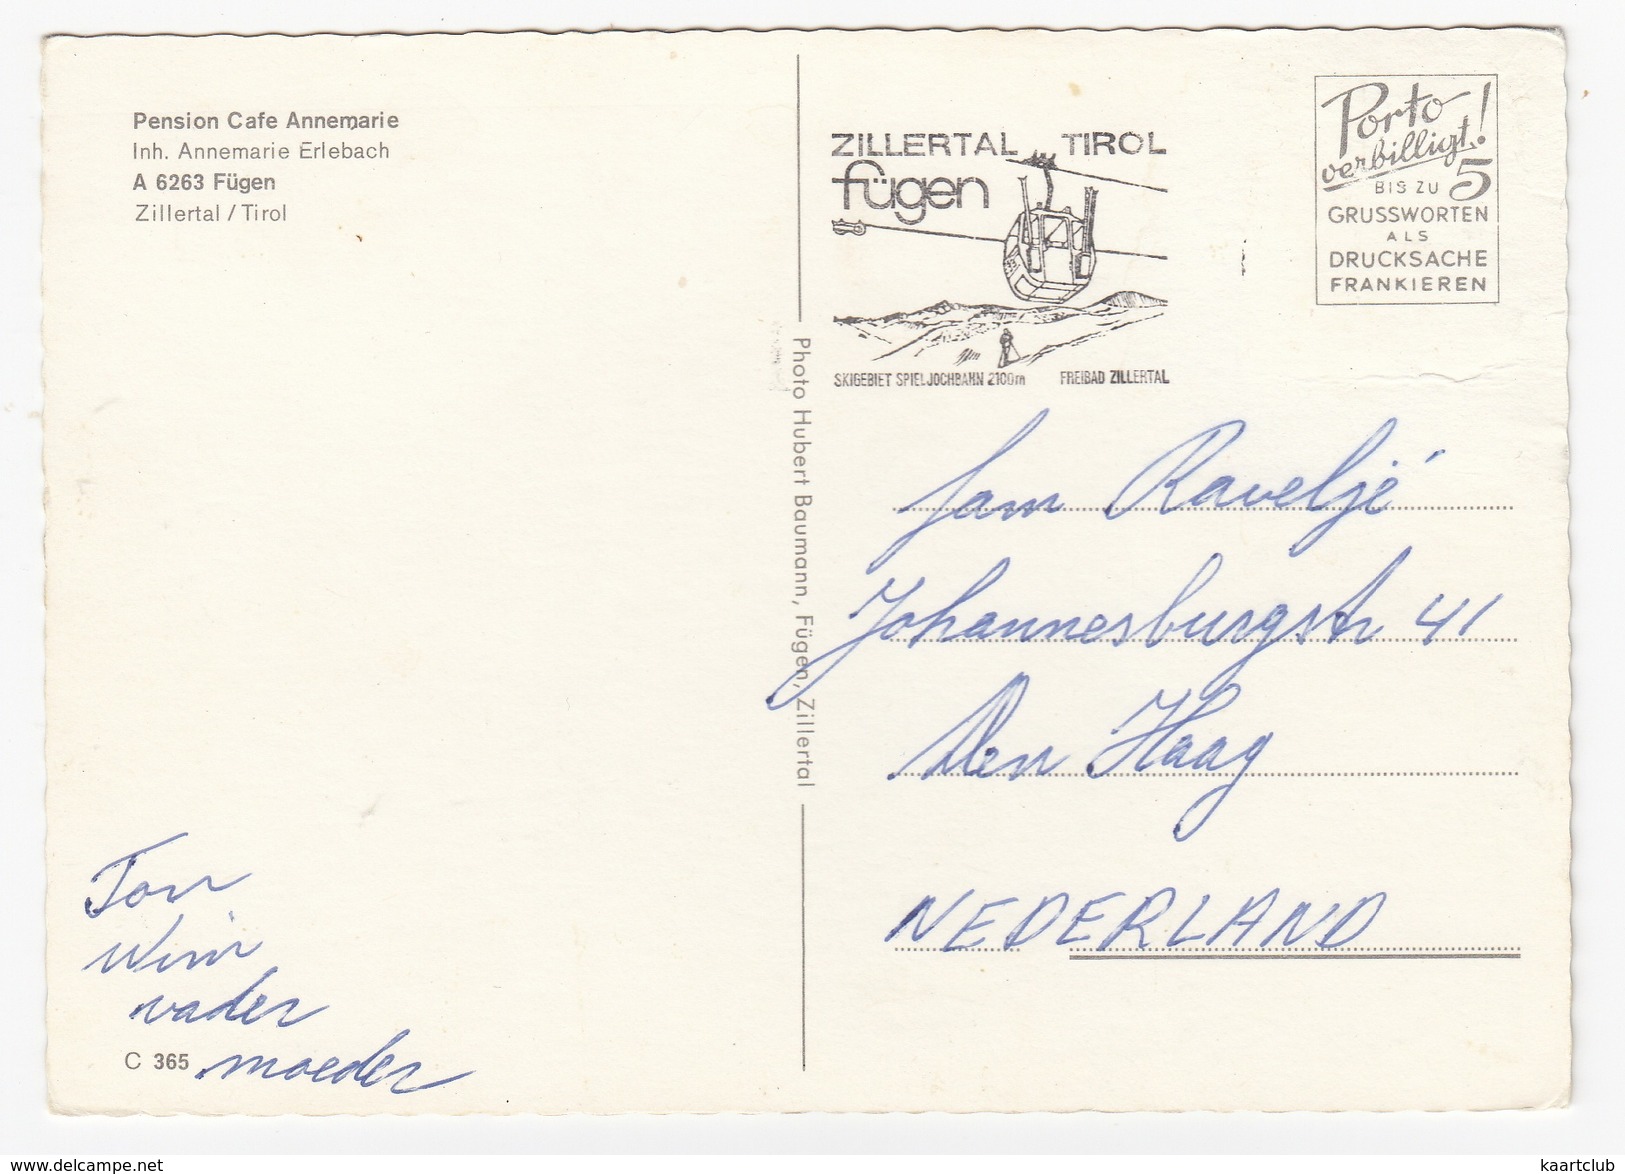 Pension Cafe Annemarie
Inh. Annemarie Erlebach
A 6263 Fügen
Zillertal / Tirol
ZILLERTAL TIROL
fügen
SKIGEBIET SPIELJOCHBAHN 2100m FREIBAD ZILLERTAL
Porto
verbilligt!
BIS ZU 5
GRUSSWORTEN
ALS
DRUCKSACHE
FRANKIEREN
Photo Hubert Baumann, Fügen, Zillertal
Fam Raveljé
Johannesburgstr 41
Den Haag
NEDERLAND
Ton
Wim
vader
moeder
C 365
www.delcampe.net
kaartclub